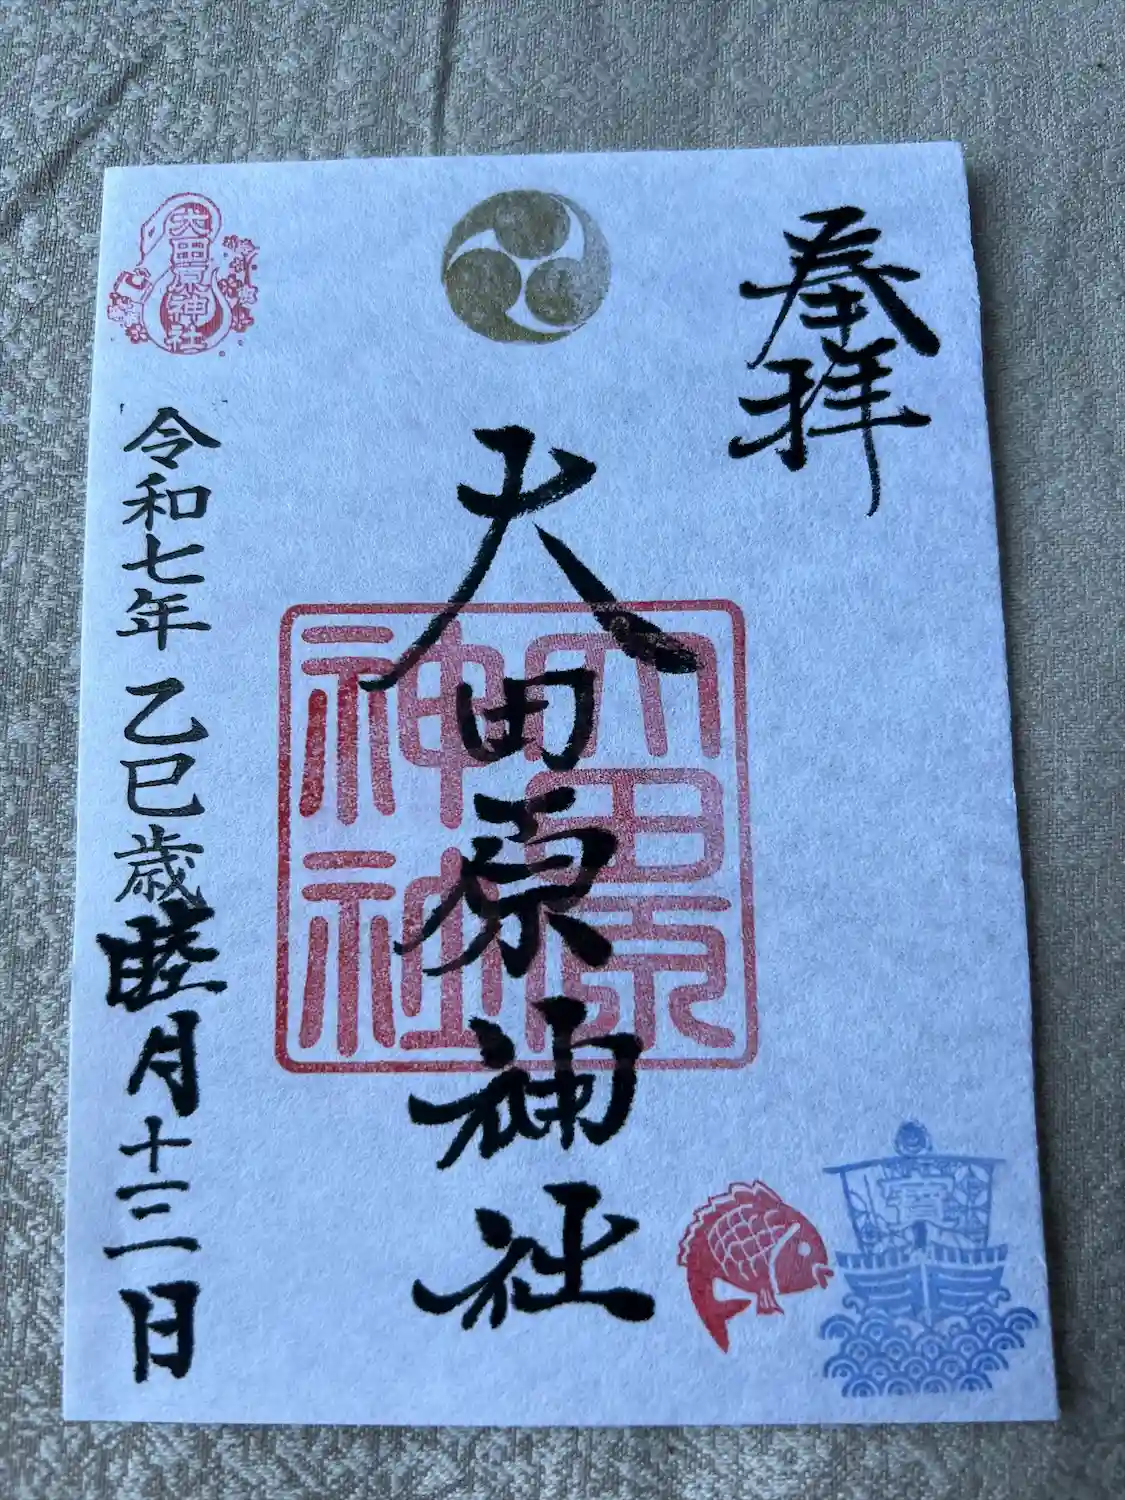 奉拝
大田原神社
大田原
神社
大田原神社
令和七年 乙巳歳 睦月十三日
寶